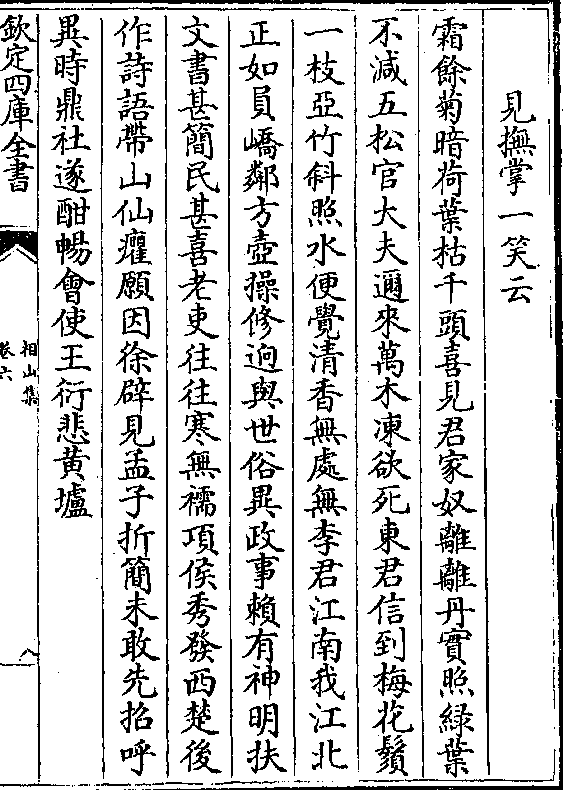 見撫掌一笑云
霜餘菊暗荷葉枯千頭喜見君家奴離離丹實照綠葉
不減五松官大夫邇來萬木凍欲死東君信到梅花鬚
一枝亞竹斜照水便覺清香無處無李君江南我江北
正如員嶠鄰方壺操修逈與世俗異政事賴有神明扶
文書甚簡民甚喜老吏往往寒無襦項侯秀發西楚後
作詩語帶山仙癯願因徐辟見孟子折簡未敢先招呼
異時鼎社遂酣暢會使王衍悲黃壚
欽定四庫全書
相山集
卷六
八